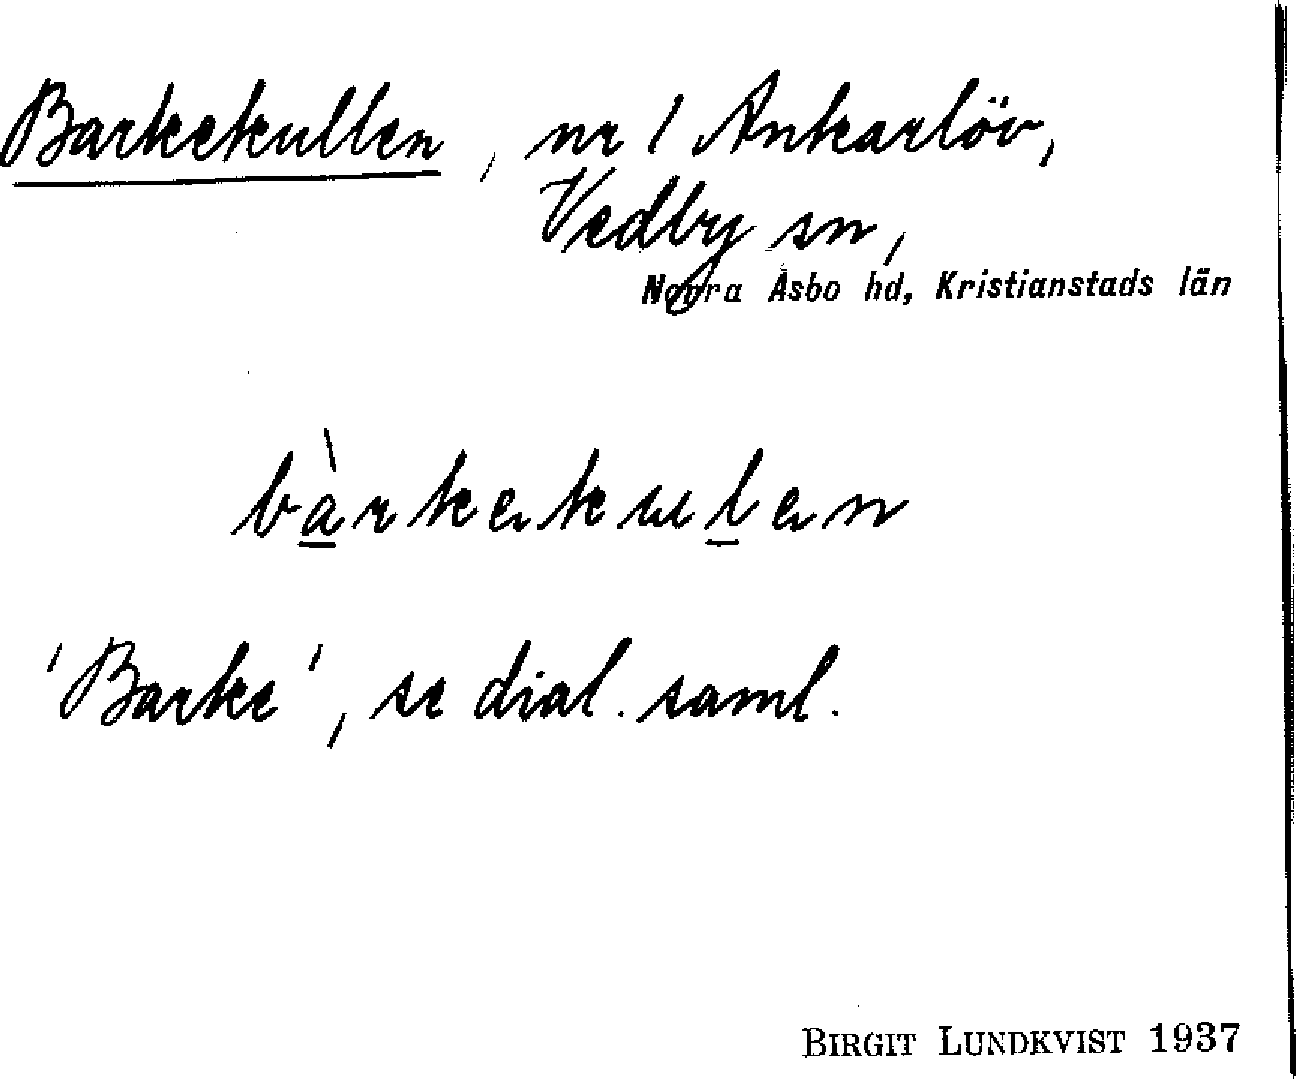 Barkekullen, nr 1 Ankarlöv,
Vedby sn,
Norra Åsbo hd, Kristianstads län
bàrkekulen
'Barke', se dial. saml.
BIRGIT LUNDKVIST 1937